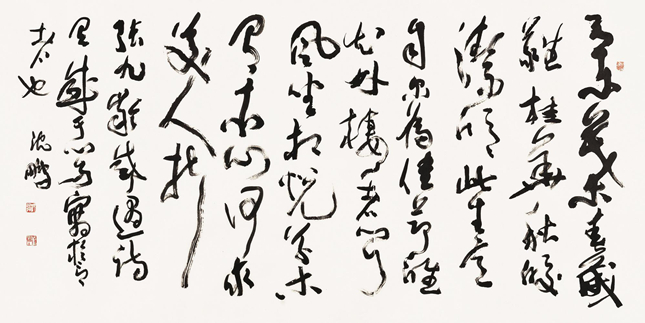 蘭葉春葳
蕤桂華秋皎
潔欣欣此生意
自爾為佳節誰
知林棲者聞
風坐相悅草木
有本心何求
美人折
張九齡感遇詩
沈鵬